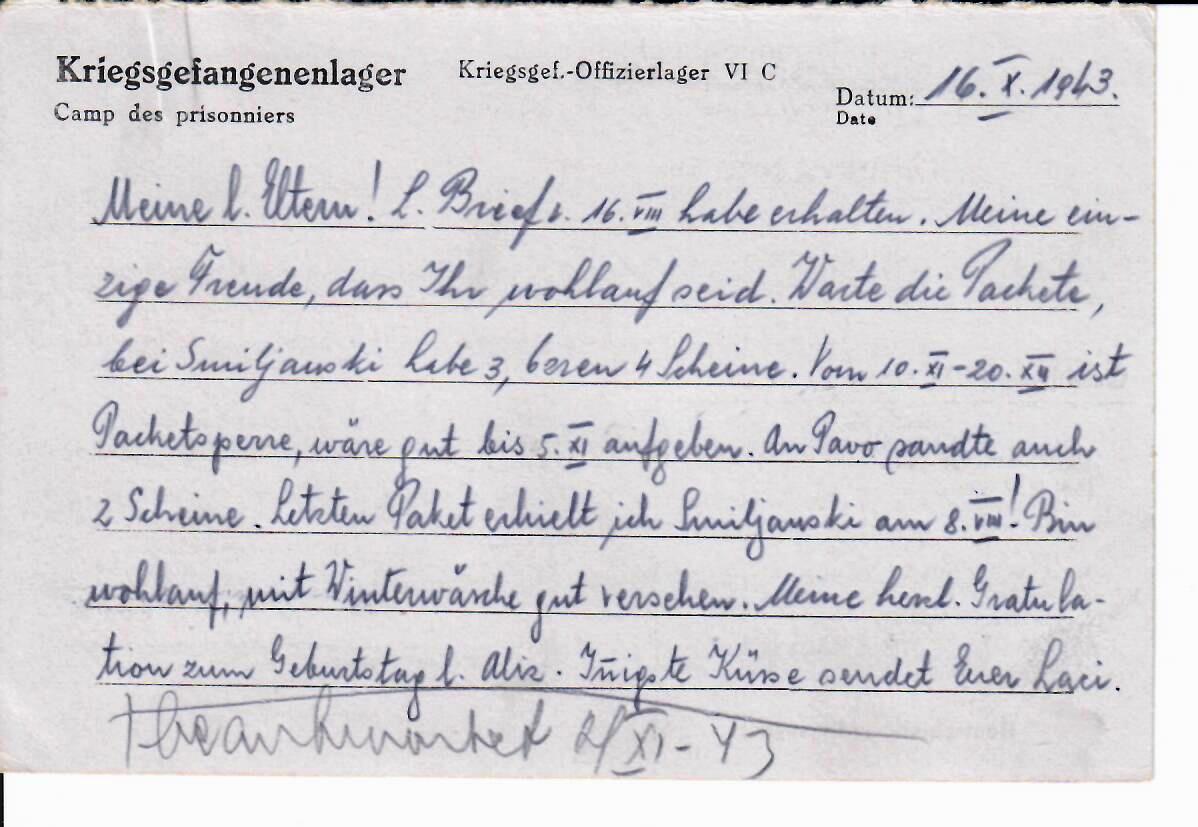 Kriegsgefangenenlager
Camp des prisonniers
Kriegsgef.-Offizierlager VI C
Datum: 16. X. 1943.
Date
Meine l. Eltern! L. Brief v. 16. VIII habe erhalten. Meine ein-
zige Freude, dass Ihr wohlauf seid. Warte die Packete,
bei Smiljanski habe 3, 4 Scheine. Vom 10. XI-20. XII ist
Packetsperre, wäre gut bis 5. XI aufgeben. An Pavo sandte auch
2 Scheine. Letzten Paket erhielt ich Smiljanski am 8. VIII! Bin
wohlauf, mit Winterwäsche gut versehen. Meine herzl. Gratula-
tion zum Geburtstag l. Aliz. Iñigste Küsse sendet Euer Laci.
beantwortet 2/XI-43